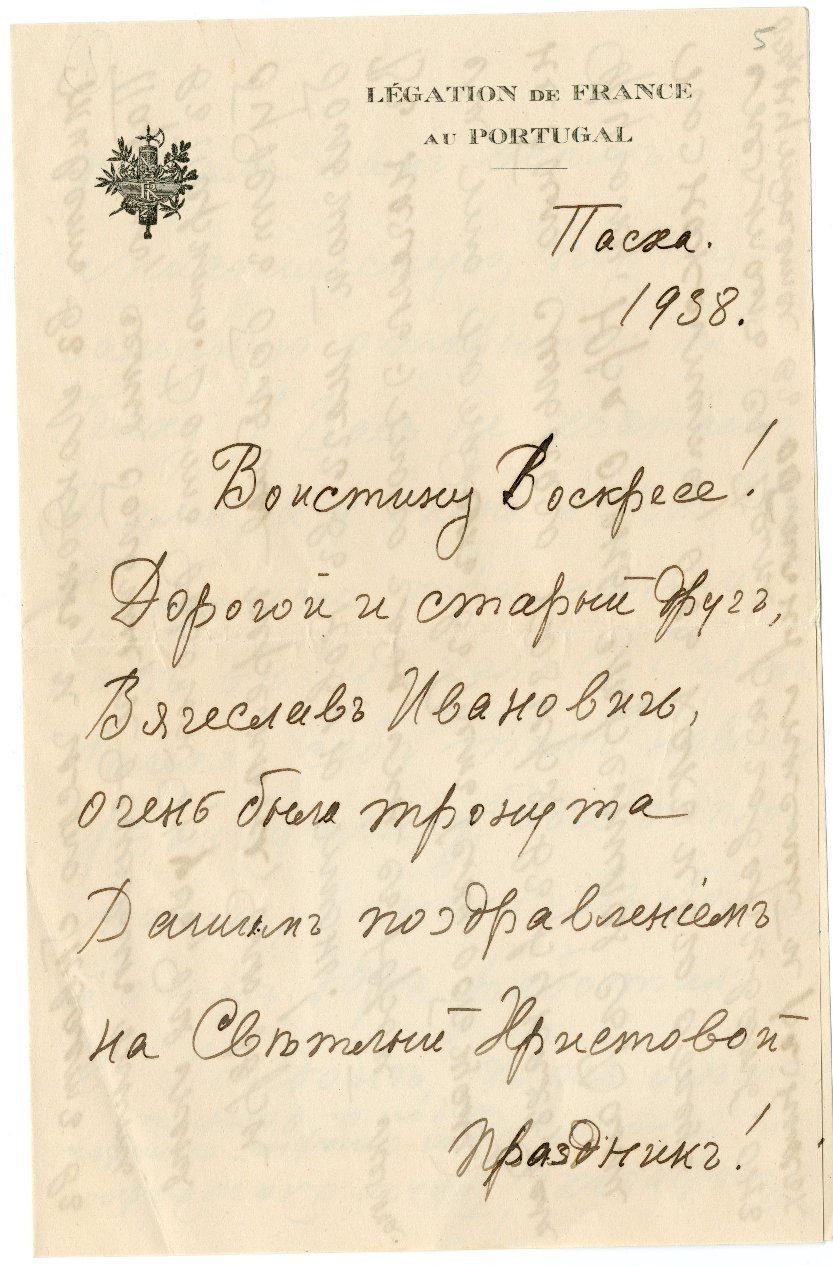 5
LÉGATION DE FRANCE
AU PORTUGAL
RF
Пасха.
1938.
Воистину Воскресе!
Дорогой и старый другъ,
Вячеславъ Ивановичъ,
очень была тронута
Вашимъ поздравленіемъ
на Свѣтлый Христовой
праздникъ!